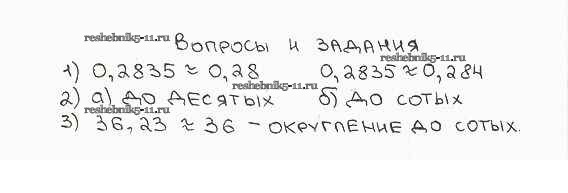 reshebnik5-11.ru
Вопросы и задания
reshebnik5-11.ru
1) 0,2835 ≈ 0,28 0,2835 ≈ 0,284
reshebnik5-11.ru
2) а) до десятых б) до сотых
reshebnik5-11.ru
3) 36,23 ≈ 36 – округление до сотых.